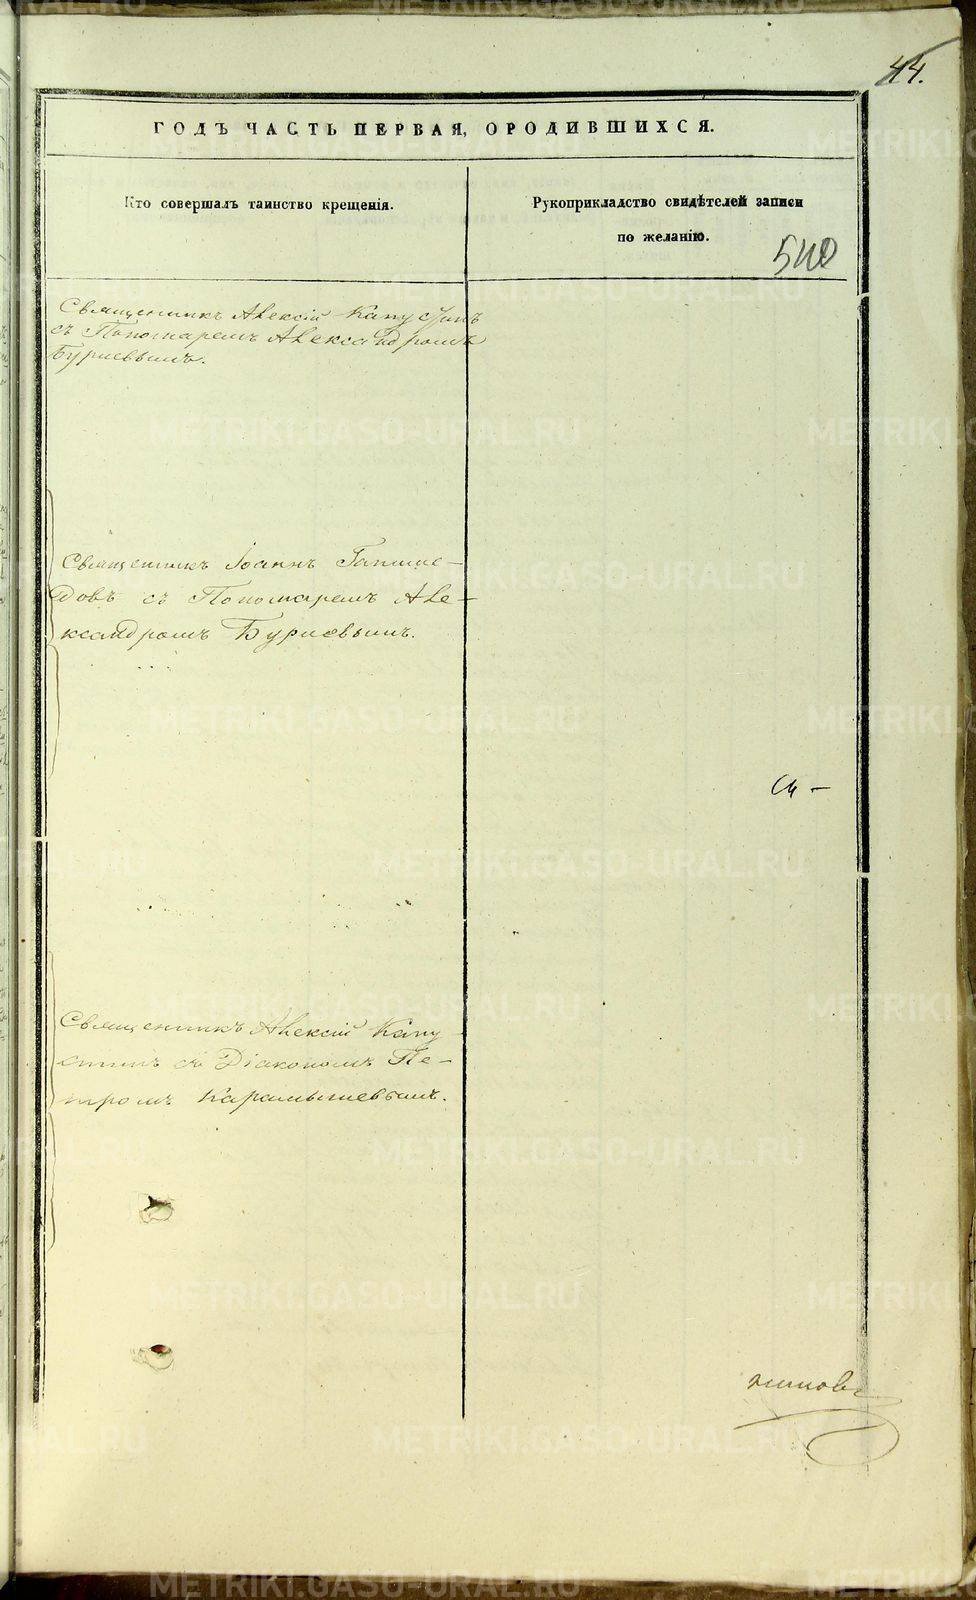 44.
ГОДЪ ЧАСТЬ ПЕРВАЯ, ОРОДИВШИХСЯ.
Кто совершалъ таинство крещенія.
Рукоприкладство свидѣтелей записи
по желанію.
540
Священникъ Алексій Капустинъ
съ Пономаремъ Александромъ
Бурневымъ.
Священникъ Іоаннъ
съ Пономаремъ Але-
ксандромъ Бурневымъ.
Священникъ Алексій Капу
стинъ съ Діакономъ Пе-
тромъ Карамышевымъ.
METRIKI.GASO-URAL.RU